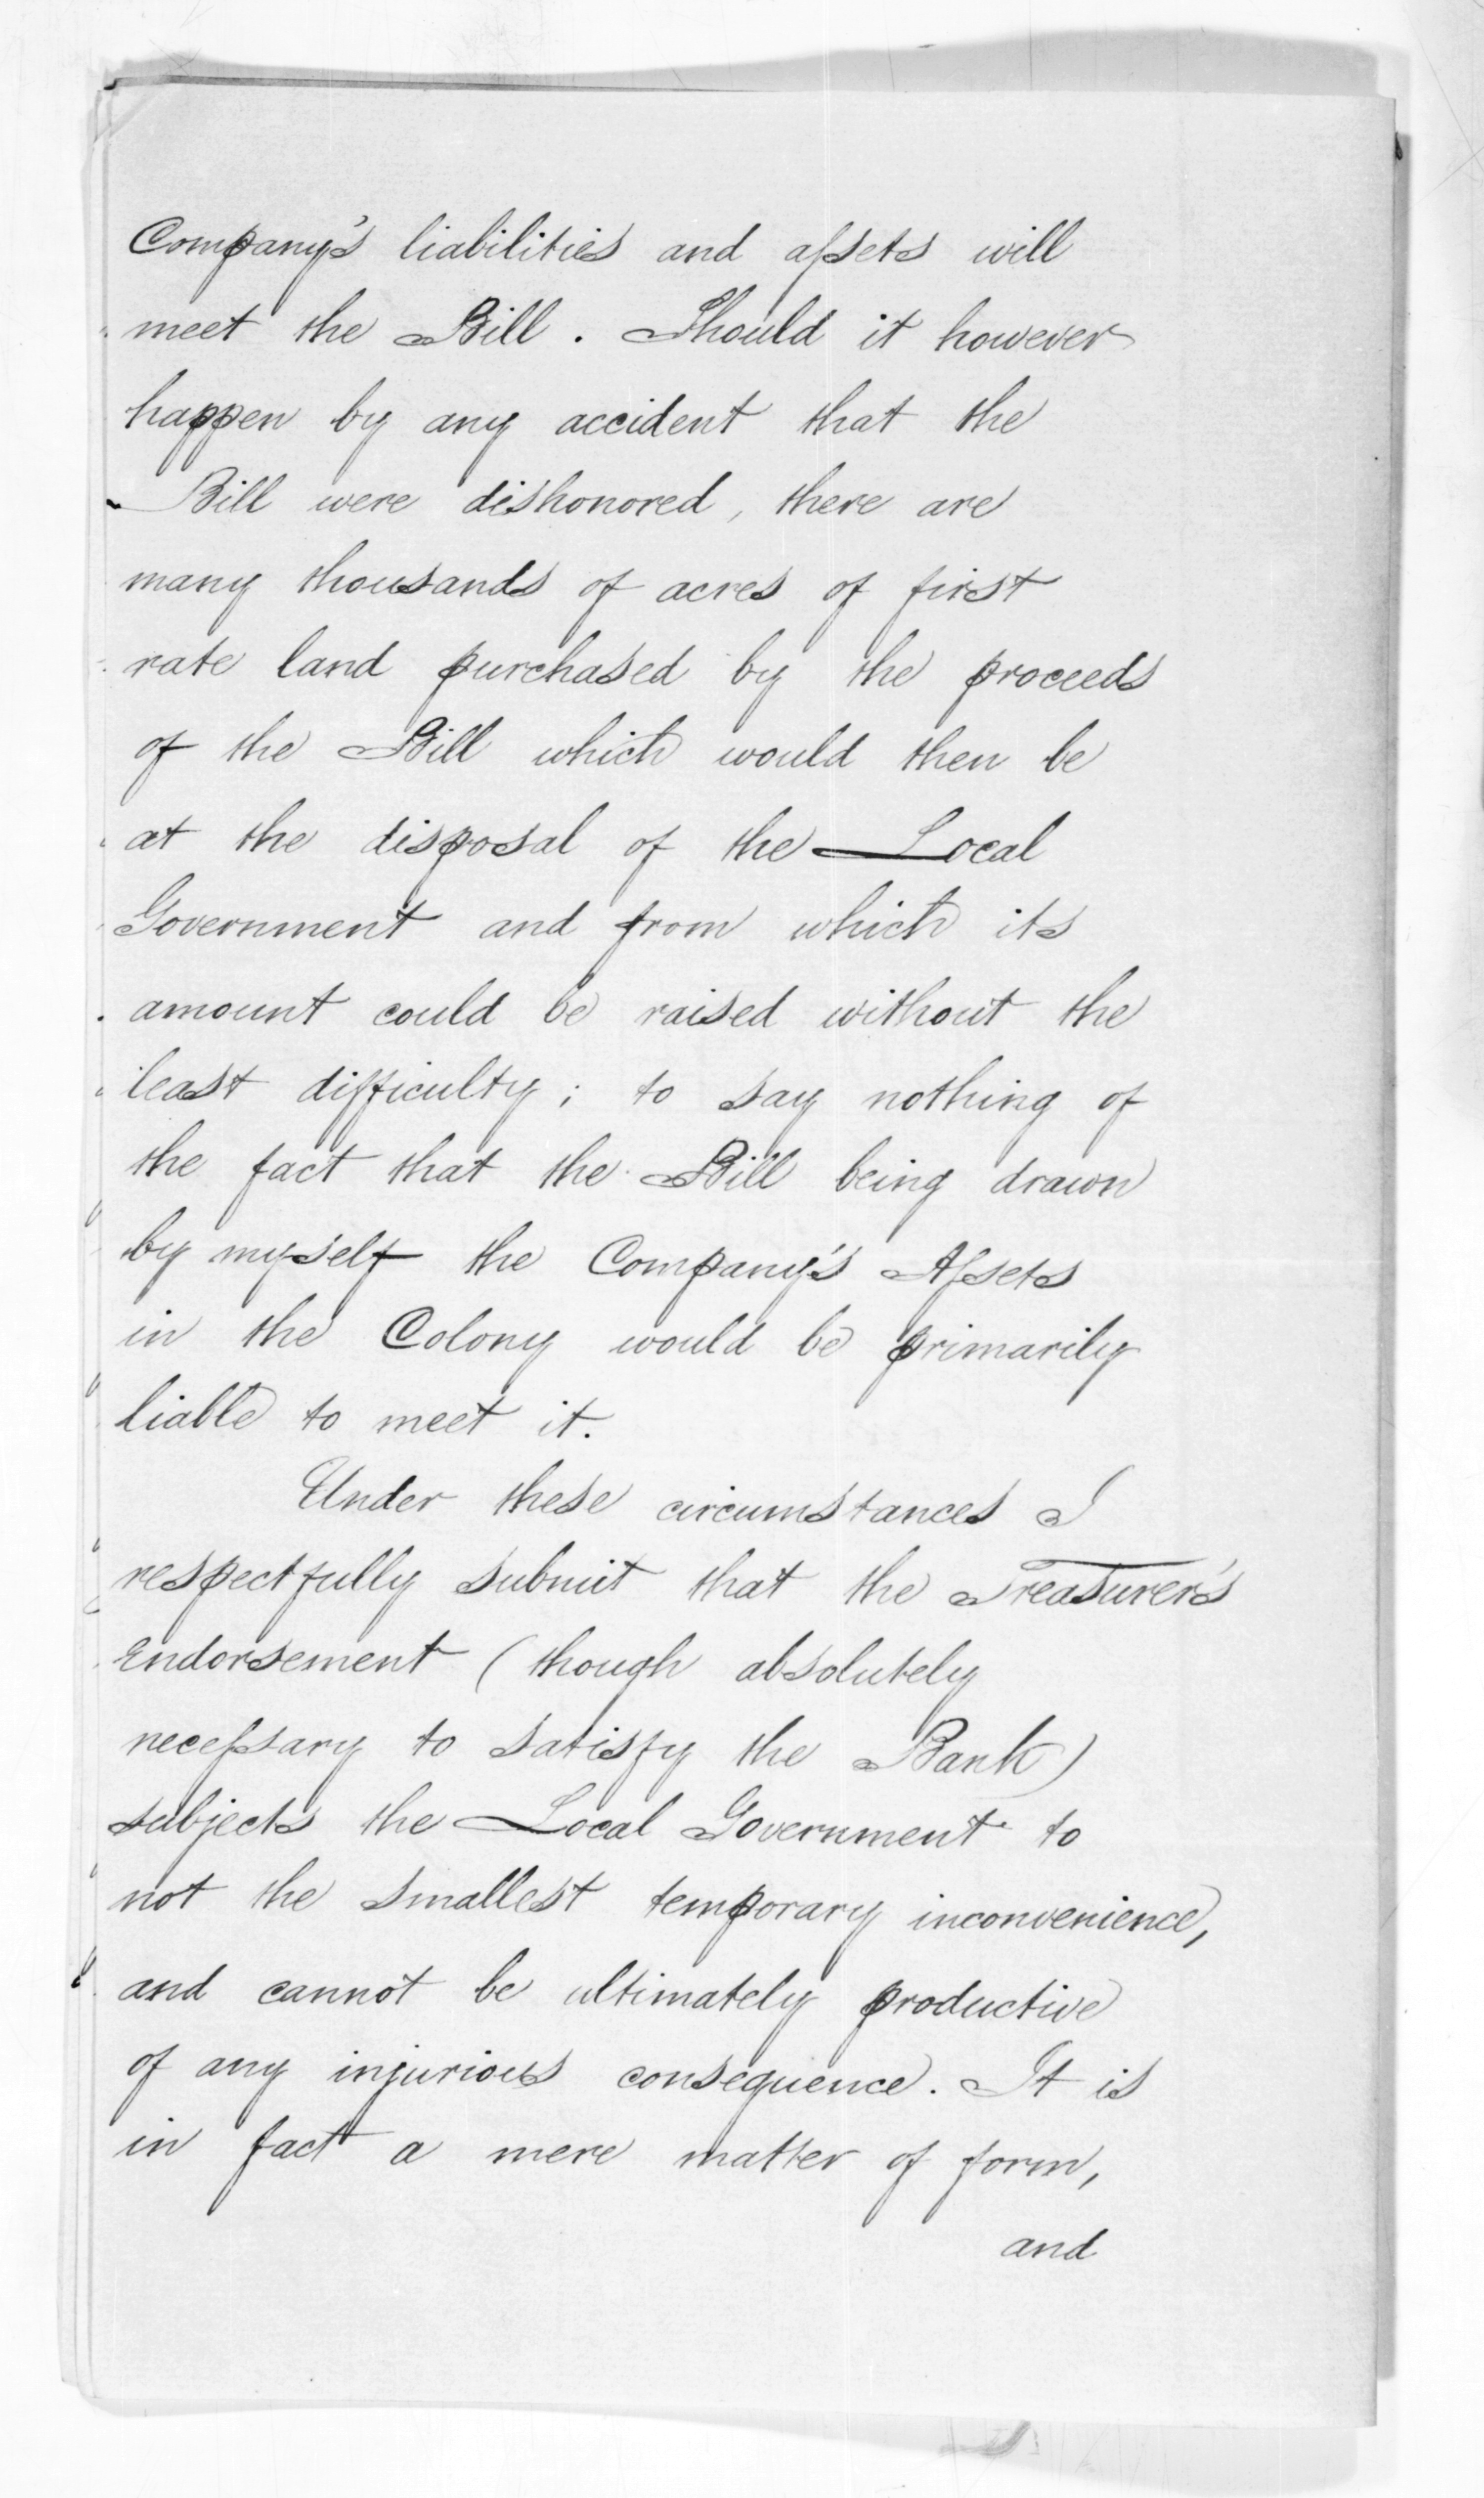 Company's liabilities and assets will
meet the Bill. Should it however
happen by any accident that the
Bill were dishonored, there are
many thousands of acres of first
rate land purchased by the proceeds
of the Bill which would then be
at the disposal of the Local
Government and from which its
amount could be raised without the
least difficulty; to say nothing of
the fact that the Bill being drawn
by myself the Company's Assets
in the Colony would be primarily
liable to meet it.
Under these circumstances I
respectfully submit that the Treasurer's
Endorsement (though absolutely
necessary to satisfy the Bank)
subjects the Local Government to
not the smallest temporary inconvenience,
and cannot be ultimately productive
of any injurious consequence. It is
in fact a mere matter of form,
and